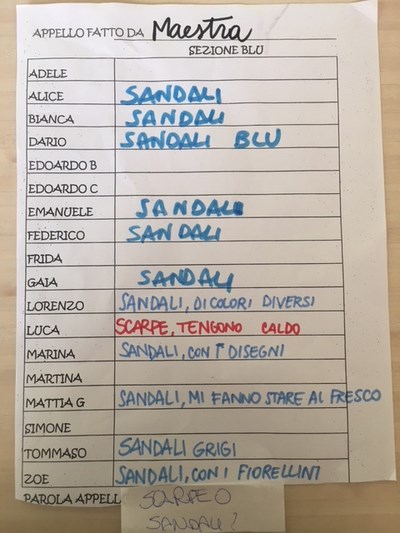 APPELLO FATTO DA Maestra
SEZIONE BLU
ADELE
ALICE SANDALI
BIANCA SANDALI
DARIO SANDALI BLU
EDOARDO B
EDOARDO C
EMANUELE SANDALI
FEDERICO SANDALI
FRIDA
GAIA SANDALI
LORENZO SANDALI, DI COLORI DIVERSI
LUCA SCARPE, TENGONO CALDO
MARINA SANDALI, CON I DISEGNI
MARTINA
MATTIA G SANDALI, MI FANNO STARE AL FRESCO
SIMONE
TOMMASO SANDALI GRIGI
ZOE SANDALI, CON I FIORELLINI
PAROLA APPELL
SCARPE O
SANDALI?